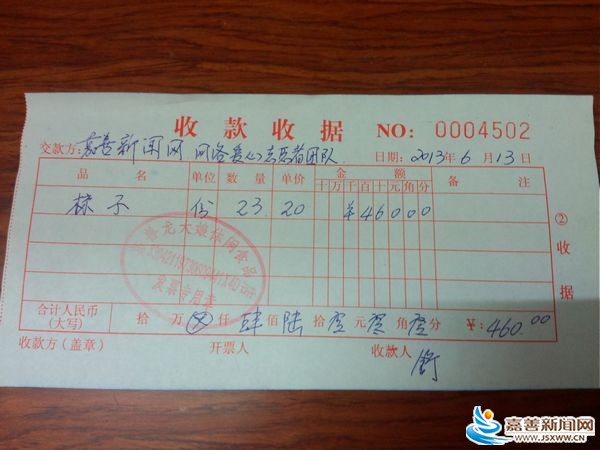 收款收据 NO: 0004502
交款方: 嘉善新闻网 网络爱心志愿者团队 日期: 2013年6月13日
品名 单位 数量 单价 金额 备注
十万千百十元角分
袜子 份 23 20 ¥46000
发票专用章
合计人民币 (大写) 拾 万 ⊗ 仟 肆 佰 陆 拾 零 元 零 角 零 分 ¥: 460.00
收款方(盖章) 开票人 收款人
② 收据
嘉善新闻网
WWW.JSXWW.CN